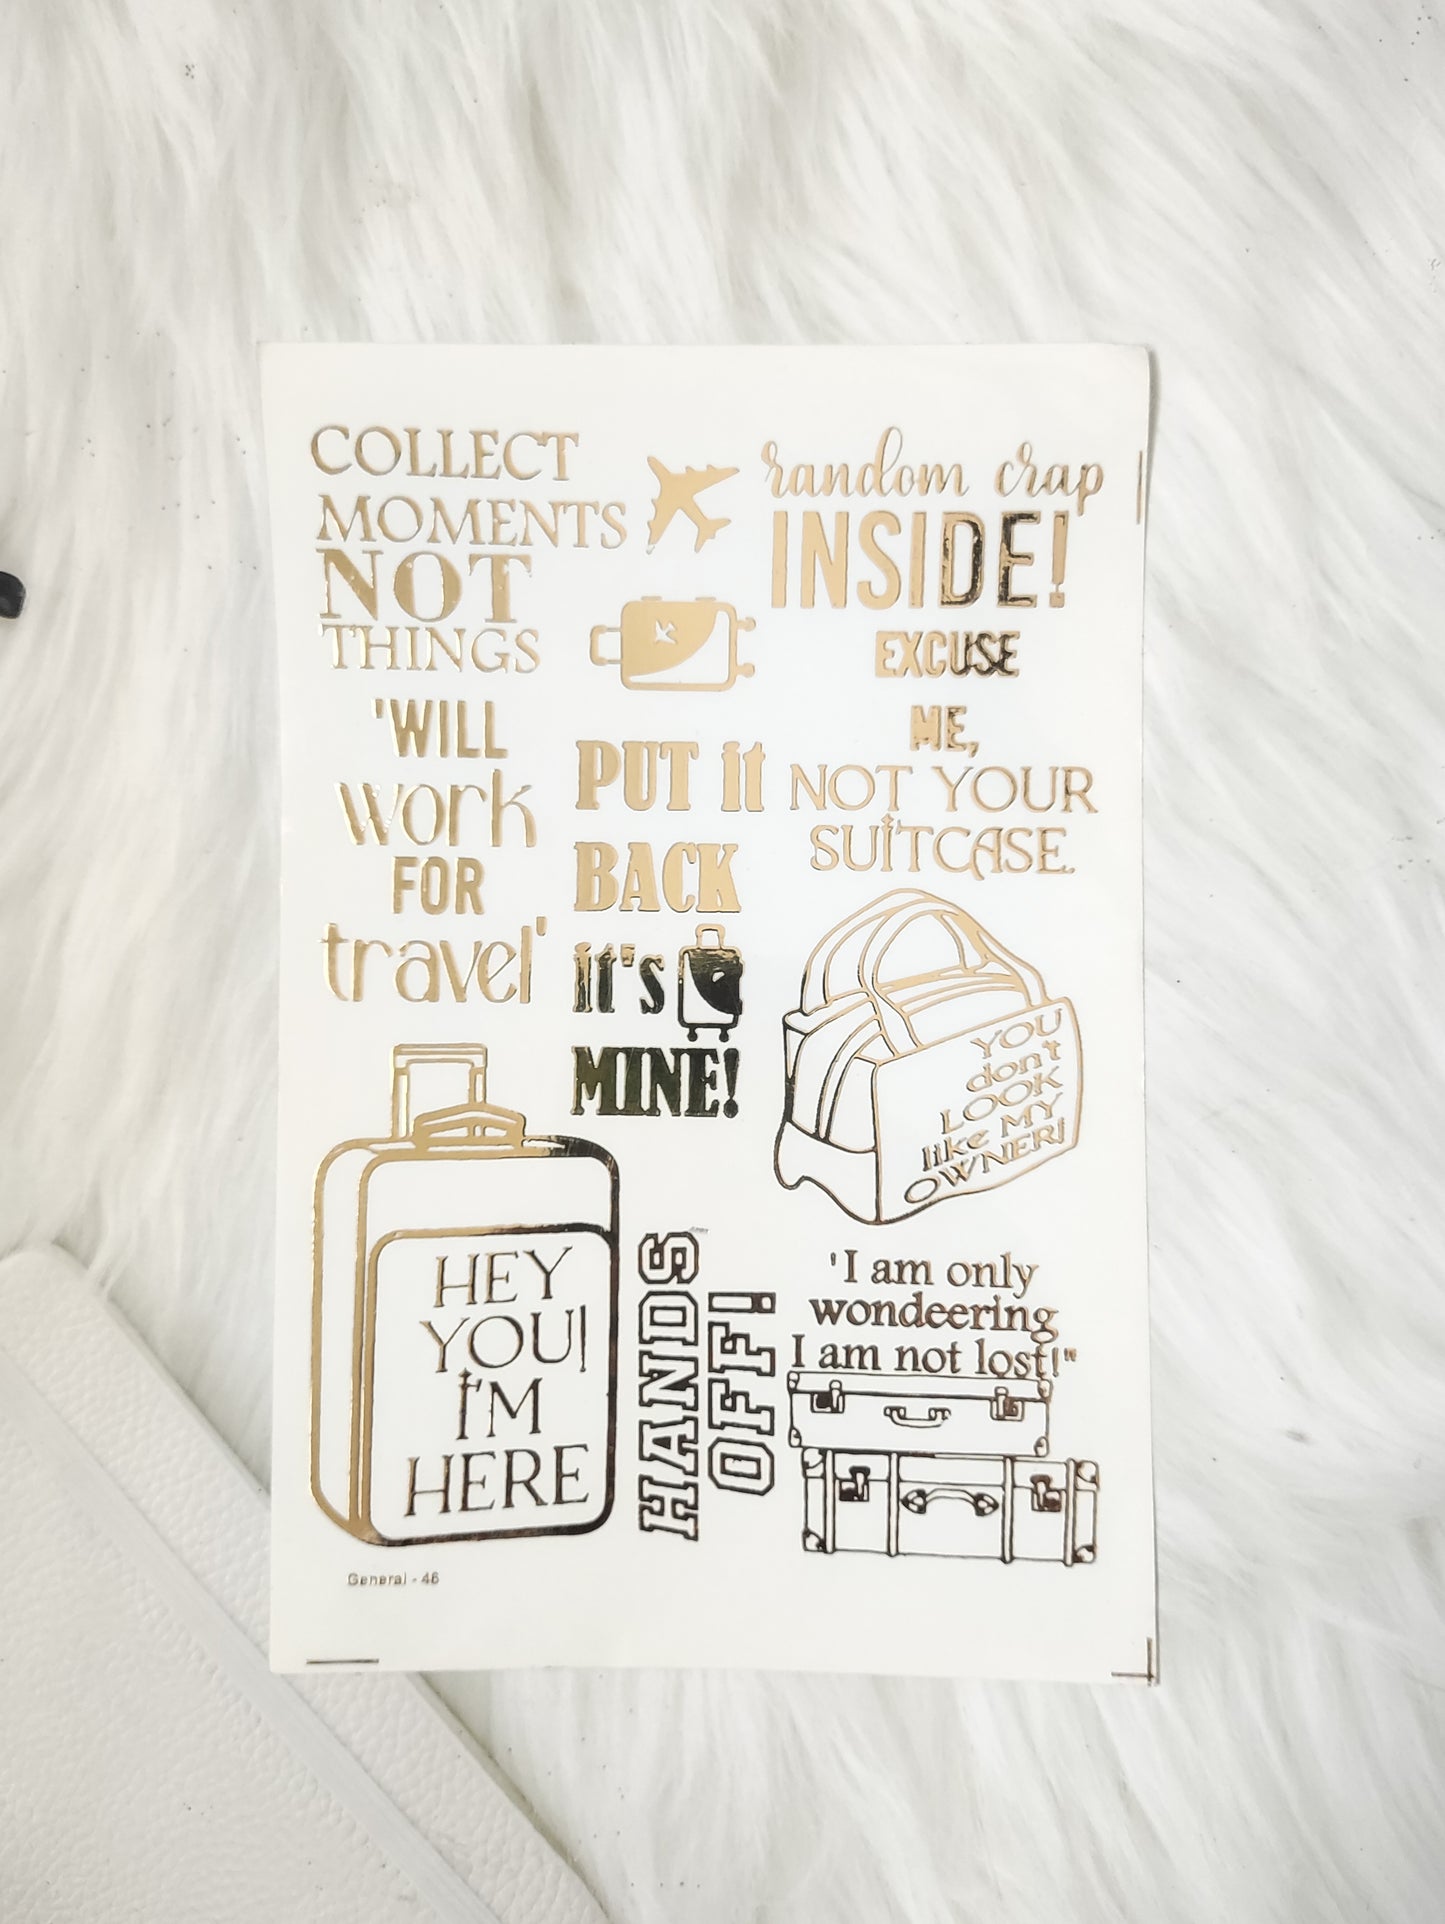 COLLECT
MOMENTS
NOT
THINGS
random crap
INSIDE!
EXCUSE
ME,
NOT YOUR
SUITCASE.
'WILL
work
FOR
travel'
PUT it
BACK
it's
MINE!
YOU
don't
LOOK
like MY
OWNER!
HEY
YOU!
I'M
HERE
HANDS
OFF!
'I am only
wondeering
I am not lost!"
General - 46